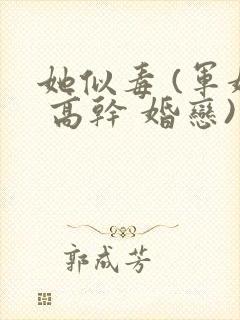 她似毒(軍婚
高幹 婚戀)
郭成芳